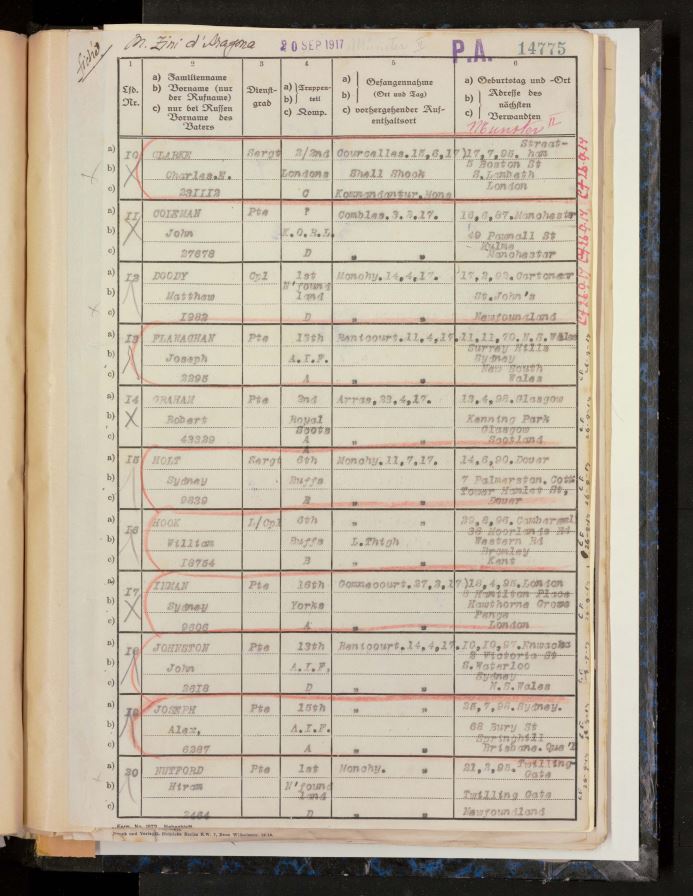 fiché
M. Zini d'Aragona
20 SEP 1917
P.A. 14775
1 2 3 4 5 6
Lfd. Nr.
a) Familienname
b) Vorname (nur der Rufname)
c) nur bei Russen Vorname des Vaters
Dienst-grad
a) Truppen-
b) teil
c) Komp.
a) Gefangennahme
b) (Ort und Tag)
c) vorhergehender Auf-enthaltsort
a) Geburtstag und -Ort
b) Adresse des
c) nächsten Verwandten
Munster II
a) 10 CLARKE Sergt 2/2nd Courcelles.15,6,17)17,7,95. Streat-ham
b) Charles.H. Londons Shell Shock 5 Boston St
S.Lambeth
c) 231112 C Kommandantur.Mons London
a) 11 COLEMAN Pte ? Combles.3.3.17. 16,6,87.Manchester
b) John K.O.R.L. 49 Pownall St
Hulme
c) 27678 D " " Manchester
a) 12 DOODY Cpl 1st Monchy.14,4,17.
b) Matthew N'found land St.John's
c) 1982 D " " Newfoundland
a) 13 FLANAGHAN Pte 13th Renicourt.11,4,17.11,11,70.N.S.Wales
b) Joseph A.I.F. Surrey Hills
Sydney
c) 2295 A " " New South Wales
a) 14 GRAHAM Pte 2nd Arras,23,4,17. 13,4,98.Glasgow
b) Robert Royal Scots Kenning Park
Glasgow
c) 43329 A " " Scotland
a) 15 HOLT Sergt 6th Monchy.11,7,17. 14,6,90.Dover
b) Sydney Buffs 7 Palmerston. Cott
Tower Hamlet St,
c) 9839 B " " Dover
a) 16 HOOK L/Cpl 6th " " 29,8,96.Camberwell
36 Moorlands Rd
b) William Buffs L.Thigh Western Rd
Bromley
c) 18754 B " " Kent
a) 17 INMAN Pte 16th Gommecourt.27,2,17)18,4,95.London
8 Hamilton Place
b) Sydney Yorks Hawthorne Grove
Penge
c) 9606 A " " London
a) 18 JOHNSTON Pte 13th Renicourt.14,4,17.16,10,97.
8 Victoria St
b) John A.I.F, S.Waterloo
Sydney
c) 2618 D " " N.S.Wales
a) 19 JOSEPH Pte 15th " " 25,7,98.Sydney.
b) Alex, A.I.F. 68 Bury St
Springhill
c) 6287 A " " Brisbane.
a) 20 NUTFORD Pte 1st Monchy. 21,3,95. Twilling-Gate
b) Hiram N'found land Twilling Gate
c) 2464 D " " Newfoundland